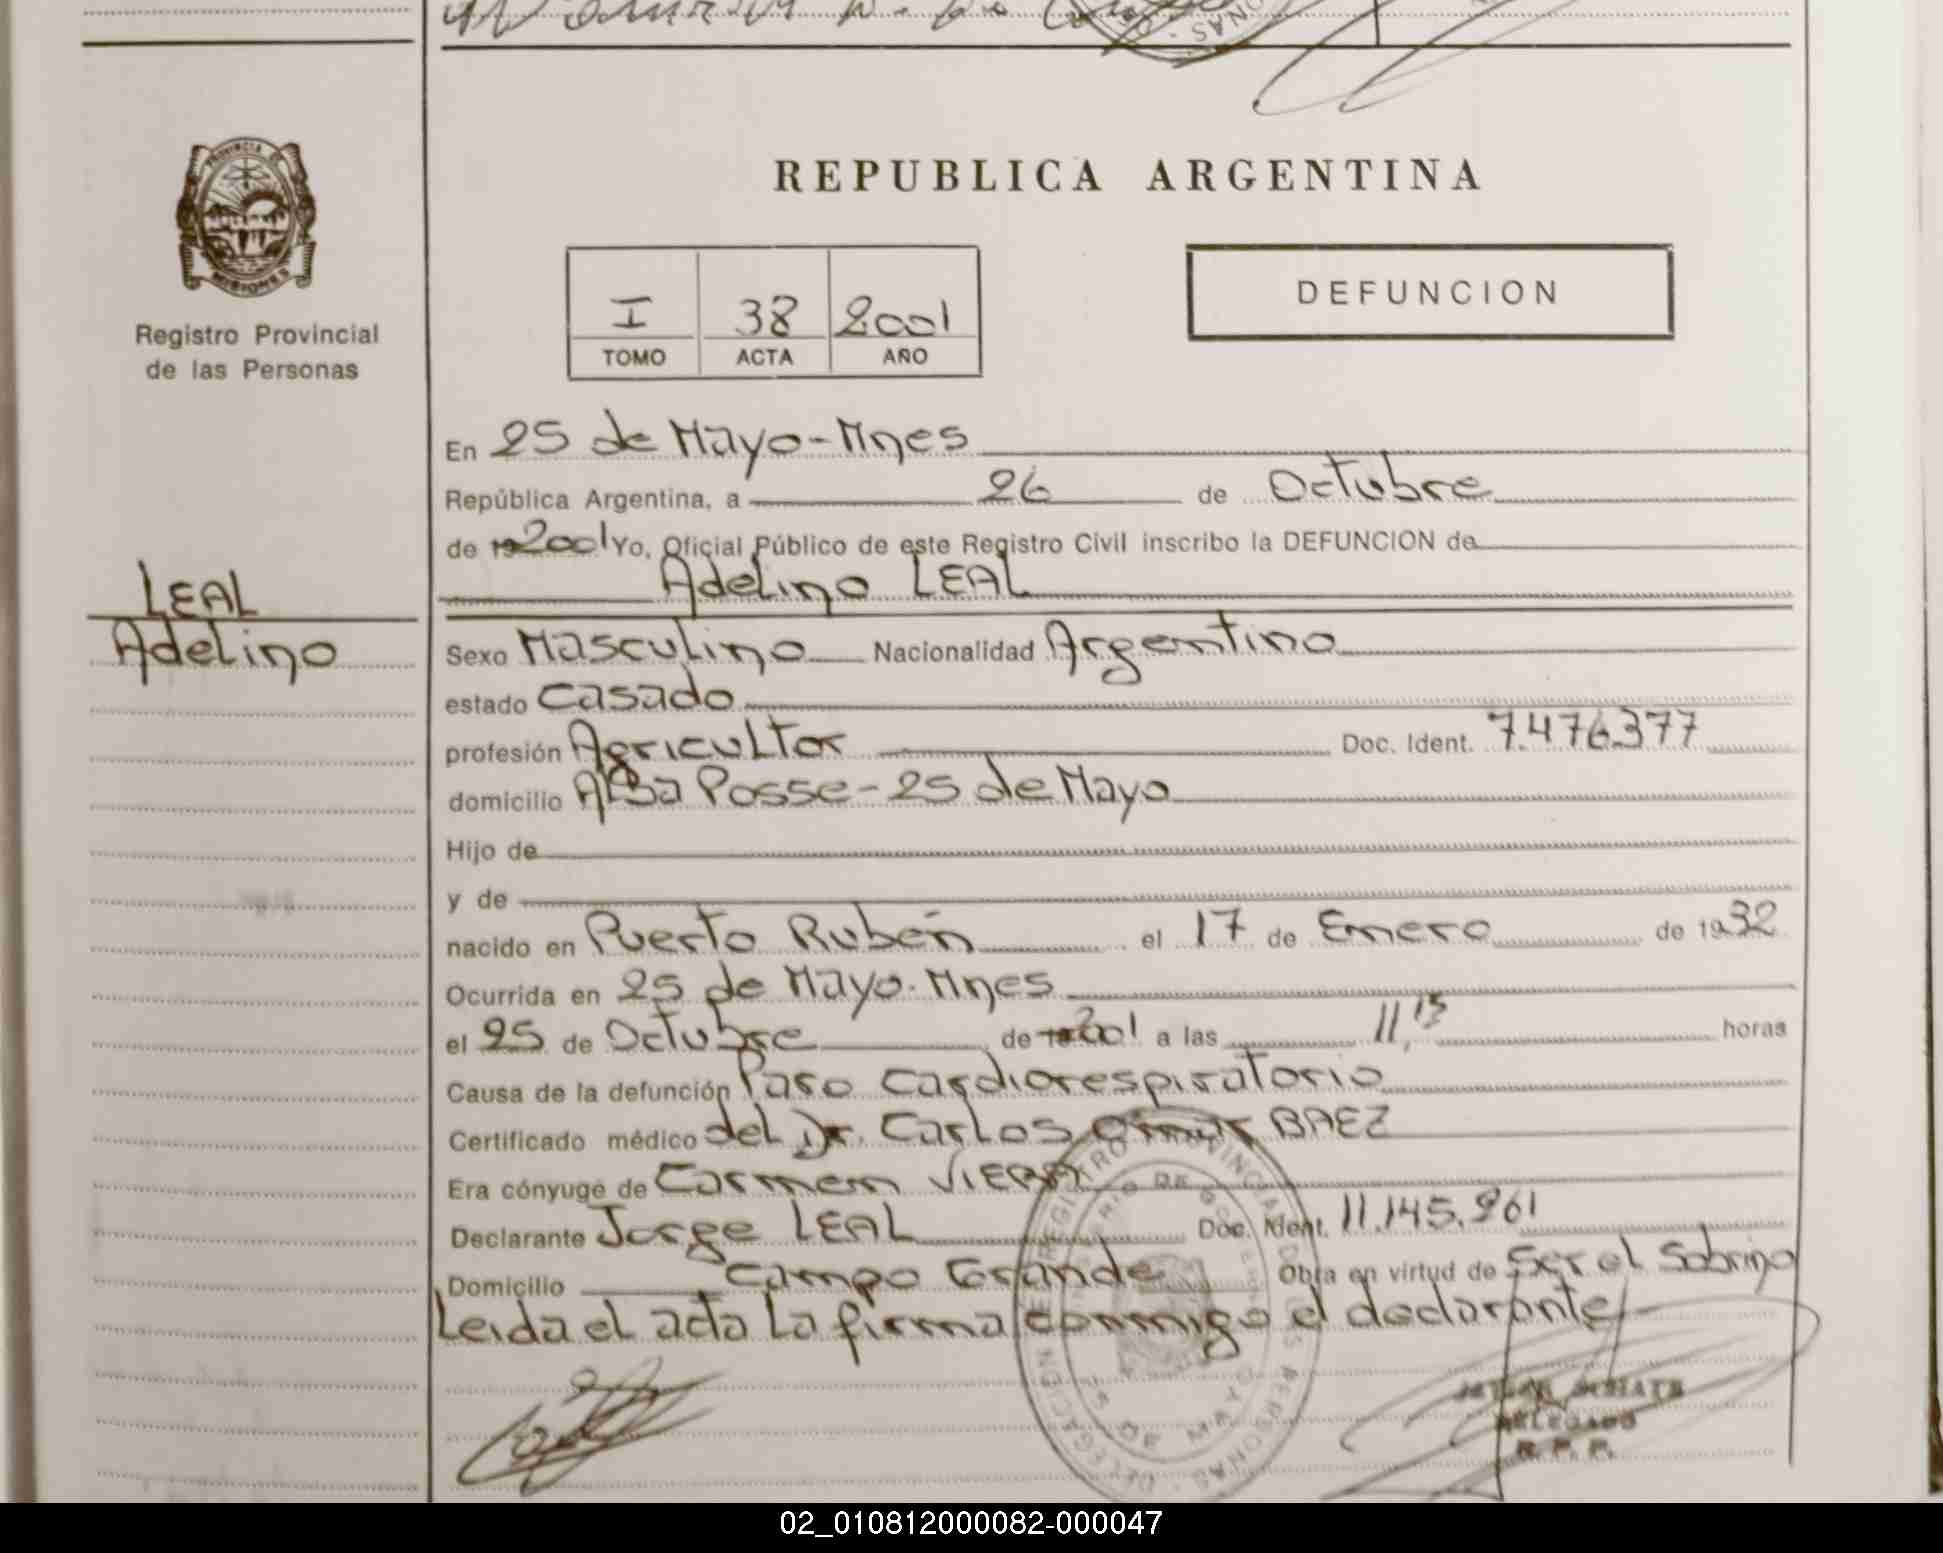 PROVINCIA DE
MISIONES
Registro Provincial
de las Personas
REPUBLICA ARGENTINA
I 38 2001
TOMO ACTA AÑO
DEFUNCION
En 25 de Mayo-Mnes
República Argentina, a 26 de Octubre
de 19 2001 Yo, Oficial Público de este Registro Civil inscribo la DEFUNCION de
Adelino LEAL
LEAL
Adelino
Sexo Masculino Nacionalidad Argentino
estado Casado
profesión Agricultor Doc. Ident. 7.476.377
domicilio Alba Posse-25 de Mayo
Hijo de
y de
nacido en Puerto Rubén el 17 de Enero de 1932
Ocurrida en 25 de Mayo. Mnes
el 25 de Octubre de 2001 a las 11,15 horas
Causa de la defunción Paro Cardiorespiratorio
Certificado médico del Dr. Carlos Omar BAEZ
Era cónyuge de Carmen VIERA
Declarante Jorge LEAL Doc. Ident. 11.145.261
Domicilio Campo Grande Obra en virtud de Ser el Sobrino
Leida el acta la firma conmigo el declarante
REGISTRO PROVINCIAL DE LAS PERSONAS
25 DE MAYO
DELEGADO
R. P. P.
02_010812000082-000047